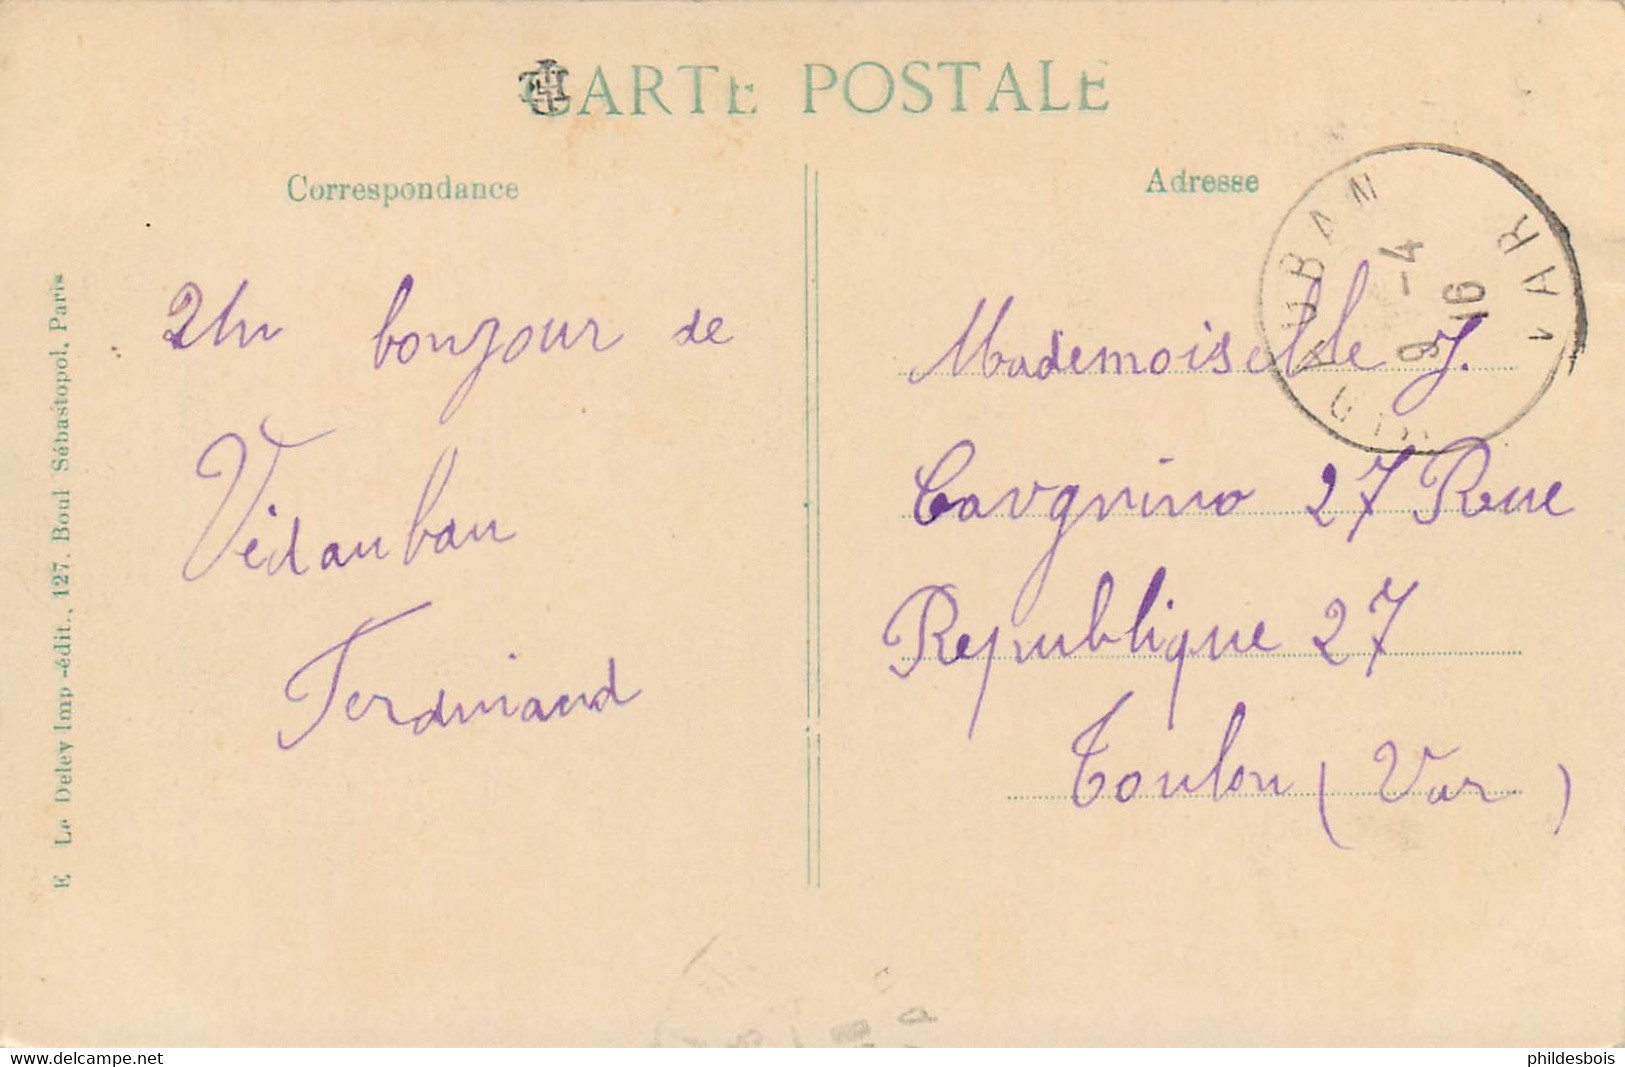 CARTE POSTALE
Correspondance
Adresse
Un bonjour de
Vidauban
Ferdinand
Mademoiselle J.
Cavgnino 27 Rue
Republique 27
Toulon (Var)
VIDAUBAN
9 -4
16
VAR
E. Le Deley Imp.-édit., 127. Boul Sébastopol, Paris
www.delcampe.net
phildesbois